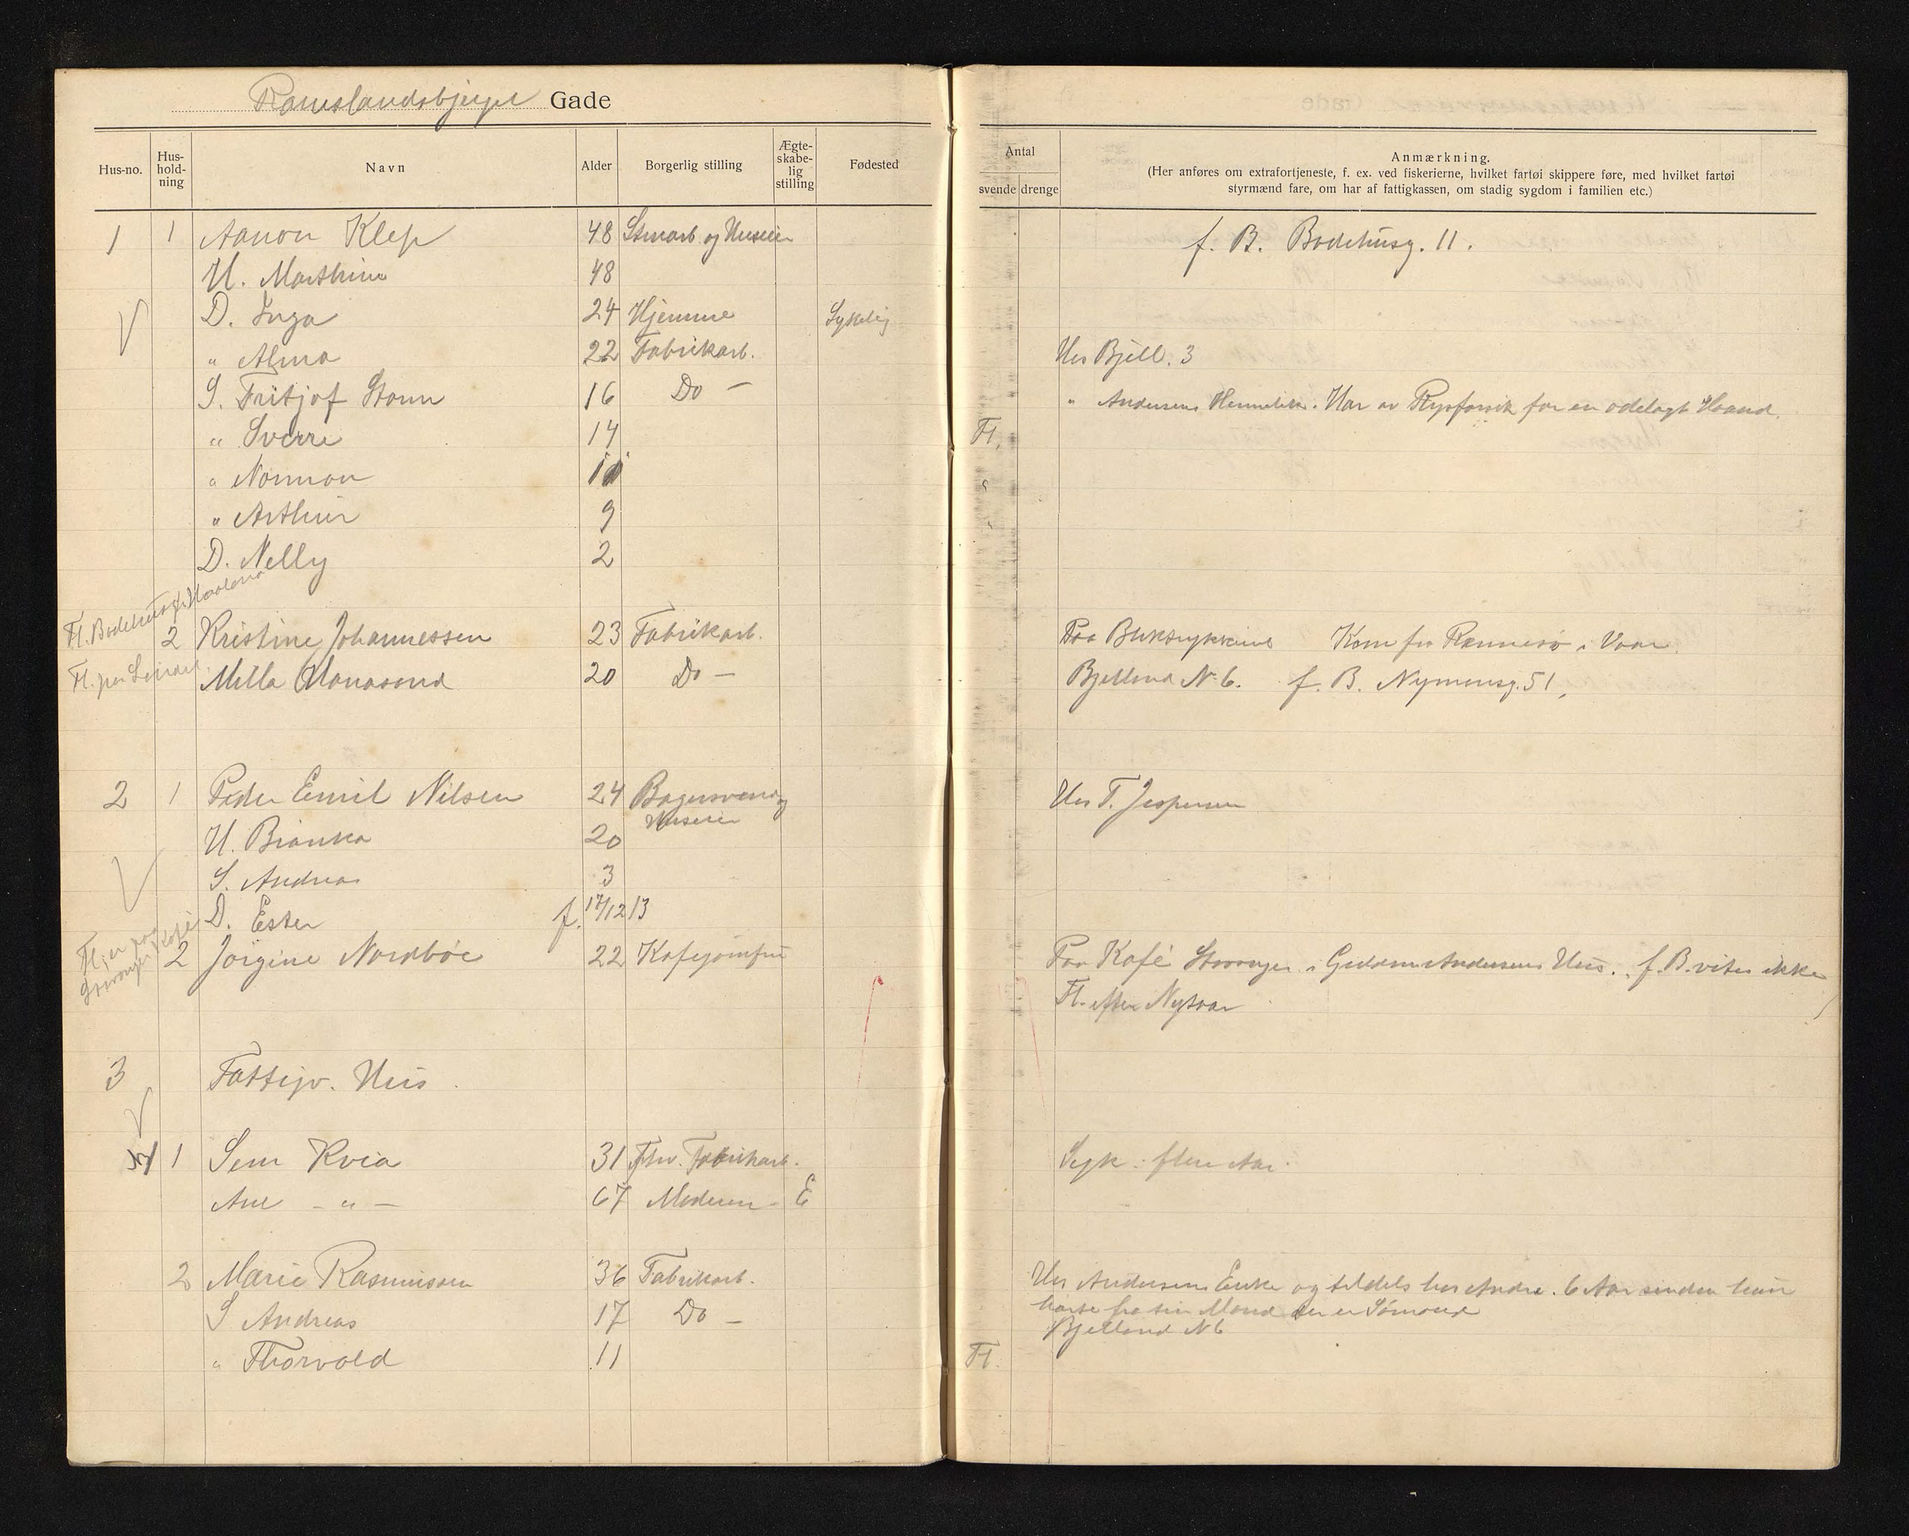 Ramslandsbjerget Gade
Hus-no. Hus-hold-ning Navn Alder Borgerlig stilling Ægte-skabe-lig stilling Fødested
1 1 Aanon Klep 48 Stuearb. og Huseier
H. Marthine 48
D. Inga 24 Hjemme Sykelig
" Alma 22 Fabrikarb.
S. Fritjof Storm 16 Do —
" Sverre 14
" Norman 11
" Arthur 9
D. Nelly 2
Fl. Bodehusg.
2 Kristine Johannessen 23 Fabrikarb.
Fl.
Milla Manasend 20 Do —
2 1 Peder Emil Nilsen 24 Bagersvend og
Huseier
H. Bianka 20
S. Andreas 3
D. Ester f. 17/12 13
Fl. er paa
Stavanger Kafé
2 Jørgine Nordbøe 22 Kafejomfru
3 Fattigv. Hus.
4 1 Sem Kvia 31 Fhv. Fabrikarb.
Ane — " — 67 Moderen — E
2 Marie Rasmussen 36 Fabrikarb.
S Andreas 17 Do —
" Thorvald 11
Antal
svende drenge
Anmærkning.
(Her anføres om extrafortjeneste, f. ex. ved fiskerierne, hvilket fartøi skippere føre, med hvilket fartøi
styrmænd fare, om har af fattigkassen, om stadig sygdom i familien etc.)
f. B. Bodehusg. 11.
Hos Bjell. 3
" Andersens Hermetik. Har av Rygforsik for en ødelagt Haand.
Fl.
"
"
Paa Bliktrykkeri Kom fra Rennesø i Vaar.
Bjelland N. 6. f. B. Nymansg. 51,
Hos T. Jespersen
Paa Kafé Stavanger i Gudm. Andersens Hus. f. B. vites ikke
Fl. efter Nytaar
Sygk. i flere Aar.
Hos Andersens Enke og tildels hos Andre. 6 Aar siden hun
hørte fra sin Mand der er Sømand
Bjelland N 6
Fl.